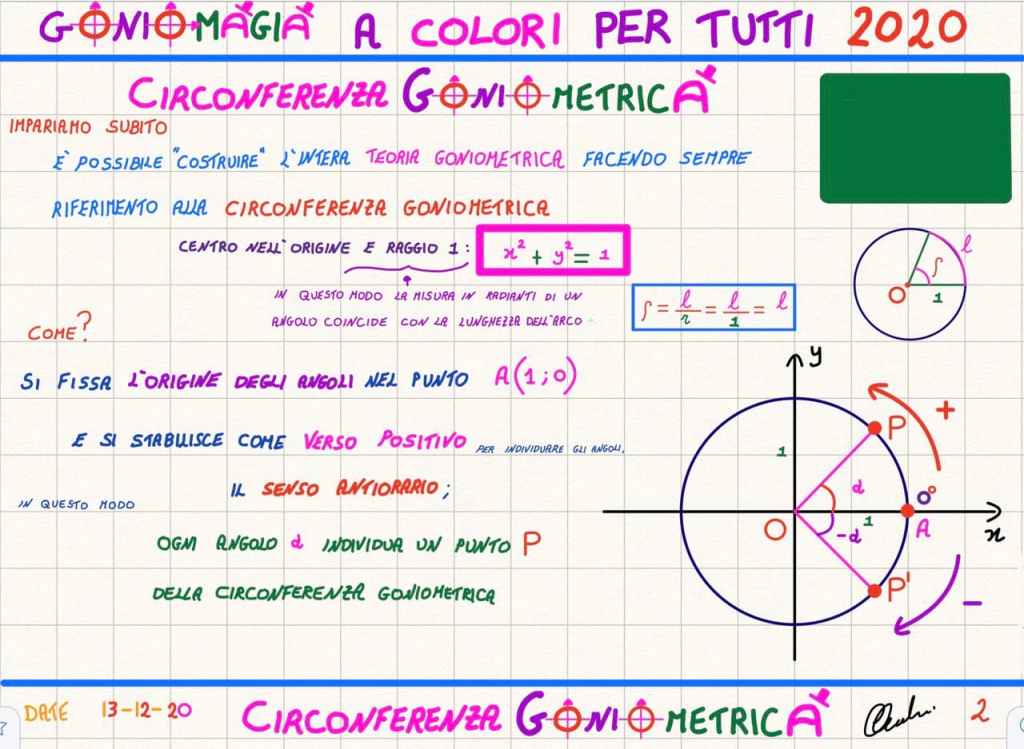 GONIOMAGIA A COLORI PER TUTTI 2020
CIRCONFERENZA GONIOMETRICA
IMPARIAMO SUBITO
E' POSSIBILE "COSTRUIRE" L'INTERA TEORIA GONIOMETRICA FACENDO SEMPRE
RIFERIMENTO ALLA CIRCONFERENZA GONIOMETRICA
CENTRO NELL'ORIGINE E RAGGIO 1: x² + y² = 1
IN QUESTO MODO LA MISURA IN RADIANTI DI UN
ANGOLO COINCIDE CON LA LUNGHEZZA DELL'ARCO
ρ = l/r = l/1 = l
l
ρ
O
1
COME?
SI FISSA L'ORIGINE DEGLI ANGOLI NEL PUNTO A(1;0)
E SI STABILISCE COME VERSO POSITIVO PER INDIVIDUARE GLI ANGOLI,
IL SENSO ANTIORARIO;
IN QUESTO MODO
OGNI ANGOLO α INDIVIDUA UN PUNTO P
DELLA CIRCONFERENZA GONIOMETRICA
y
+
P
1
α
0°
O
1
A
x
-α
P'
-
DATE 13-12-20 CIRCONFERENZA GONIOMETRICA 2